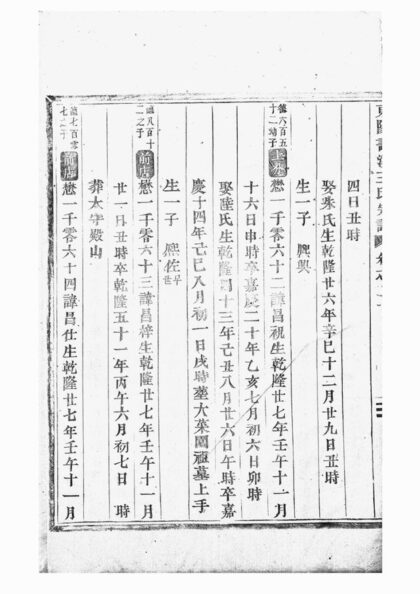 四日丑時
娶朱氏生乾隆廿六年辛巳十二月廿九日丑時
生一子 熙興
德六百五十二幼子
懋一千零六十二諱昌祝生乾隆廿七年壬午十一月
十六日申時卒嘉慶二十年乙亥七月初六日卯時
娶陸氏生乾隆四十三年己丑八月廿六日午時卒嘉
慶十四年己巳八月初一日戌時塟大菜園祖墓上手
生一子 熙佐
德八百十二之子
前店
懋一千零六十三諱昌梓生乾隆廿七年壬午十一月
廿一日丑時卒乾隆五十一年丙午六月初七日 時
葬太守殿山
德七百零七之子
前店
懋一千零六十四諱昌仕生乾隆廿七年壬午十一月